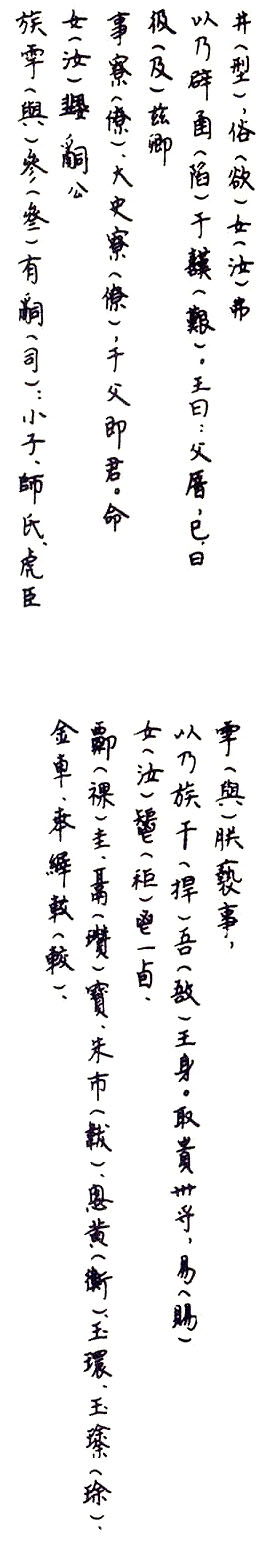 井（型），俗（欲）女（汝）弗
以乃辟圅（陷）于囏（艱）。王曰：父厝，已，曰
彶（及）茲卿
事寮（僚）、大史寮（僚），于父即君。命
女（汝）𤔲公
族雩（與）參（叁）有𤔲（司）：小子、師氏、虎臣
雩（與）朕褻事，
以乃族干（捍）吾（敔）王身。取貴卅寽，易（賜）
女（汝）（秬）鬯一卣、
（祼）圭、鬲（瓚）寶、朱巿（韍）、悤黃（衡）、玉環、玉瑹（㻌）、
金車、𠦪縪較（較）、